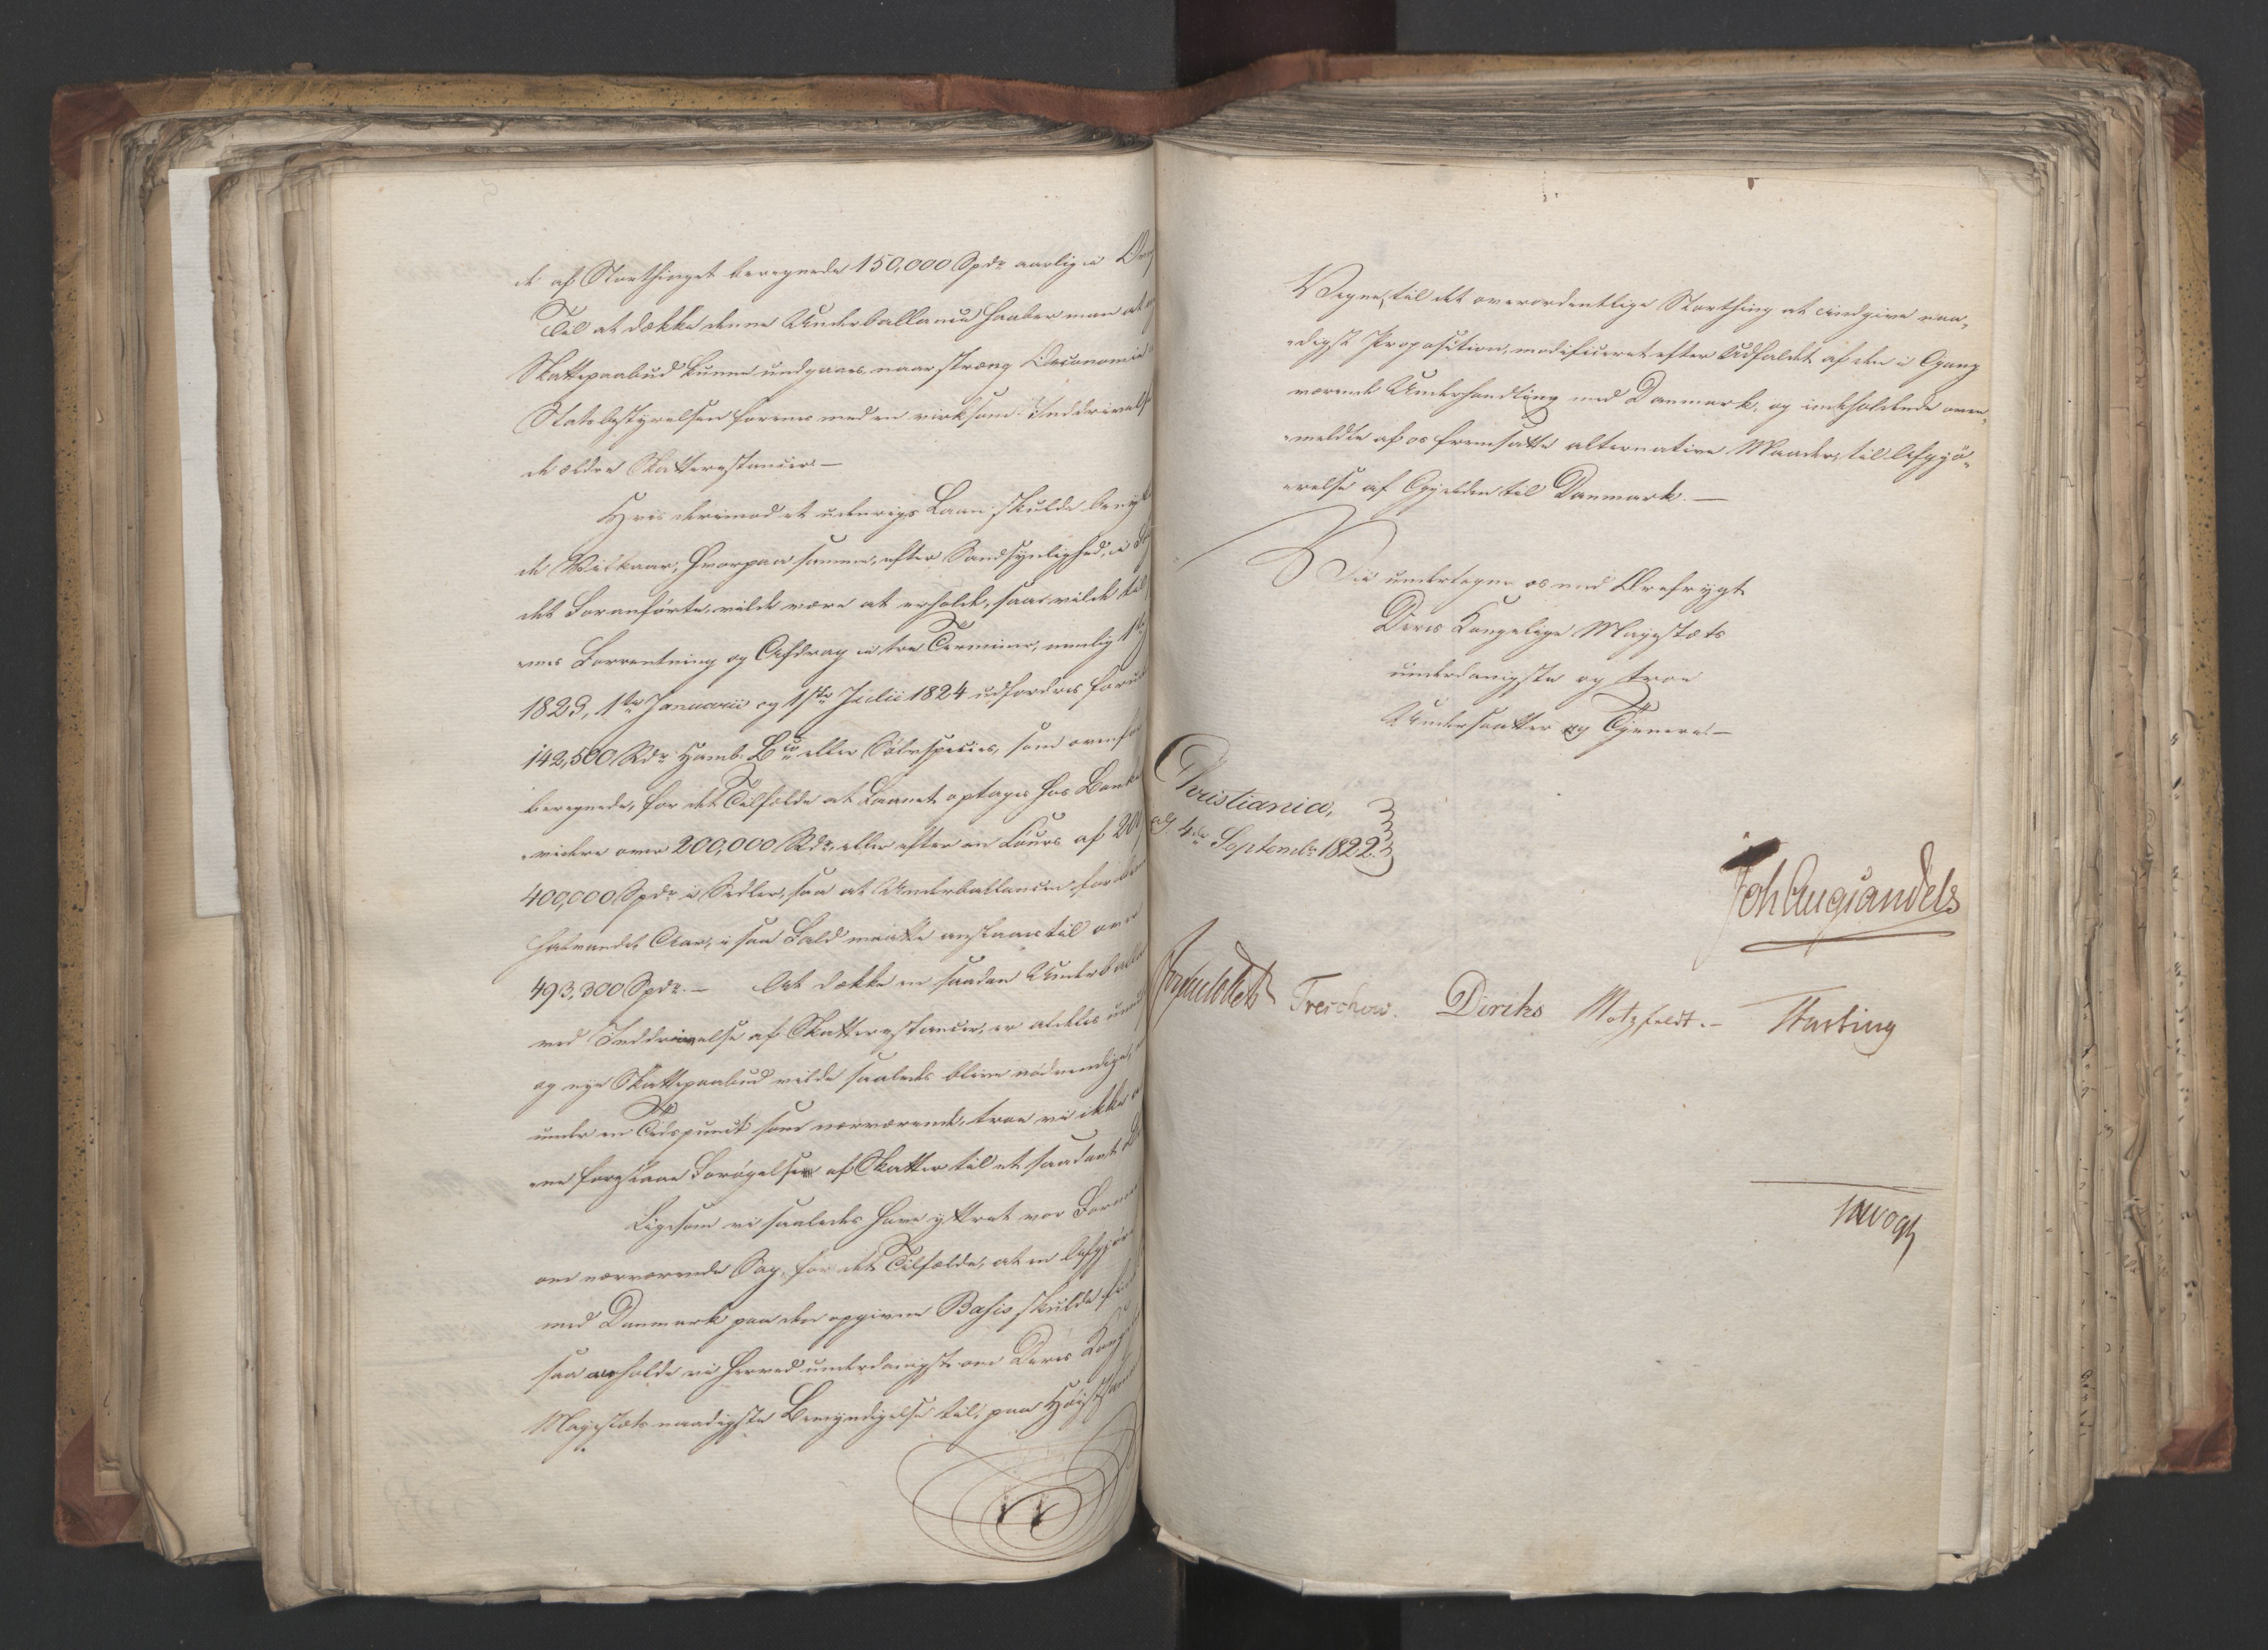 de af Storthinget beregnede 150,000 Spdr aarlig i
Til at dække denne Underballance haaber man at
Skattepaabud kunne undgaaes, naar streng Oeconomie i
Statsbestyrelsen forenes med en virksom Inddrivelse
de ældre Skatterestancer.—
Hvis derimod et udenrigs Laan skulde
de Vilkaar, hvorpaa samme, efter Sandsynlighed, i
det Foranførte, vilde være at erholde, saa vilde til
-nes Forrentning og Afdrag i tre Terminer, nemlig 1ste
1823, 1ste Januarii og 1ste Julii 1824 udfordres
142,500 Rdr Hamb. Bco eller Sølvspecies, som
beregnede, for det Tilfælde at Laanet optages hos
videre over 200,000 Rdr, eller efter en Cours af
400,000 Spdr i Sedler, saa at Underballancen for
halvandet Aar, i saa Fald maatte anslaaes til over
493,300 Spdr.— At dække en saadan
ved Inddrivelse af Skatterestancer, er aldeles
og nye Skattepaabud vilde saaledes blive nødvendige,
under en Tidspunct som nærværende, troe vi ikke
-ne foreslaae Forøgelse af Skatter til et saadant
Ligesom vi saaledes have yttret vor
om nærværende Sag, for det Tilfælde, at en
med Danmark paa den opgivne Basis skulde
saa anholde vi herved underdanigst om Deres
Majestæts naadigste Bemyndigelse til, paa
Vegne, til det overordentlige Storthing at indgive naa-
-digst Proposition, modificeret efter Udfaldet af den i Gang
værende Underhandling med Danmark, og indeholdende oven-
-meldte af os fremsatte alternative Maader, til Afgjø-
-relse af Gjelden til Danmark.—
Vi undertegne os med Ærefrygt
Deres Kongelige Majestæts
underdanigste og troe
Undersaatter og Tjenere.—
Christiania,
d. 4de Septembr 1822.
Joh Aug Sandels
Treschow. Diriks Motzfeldt.— Fasting
Vogt